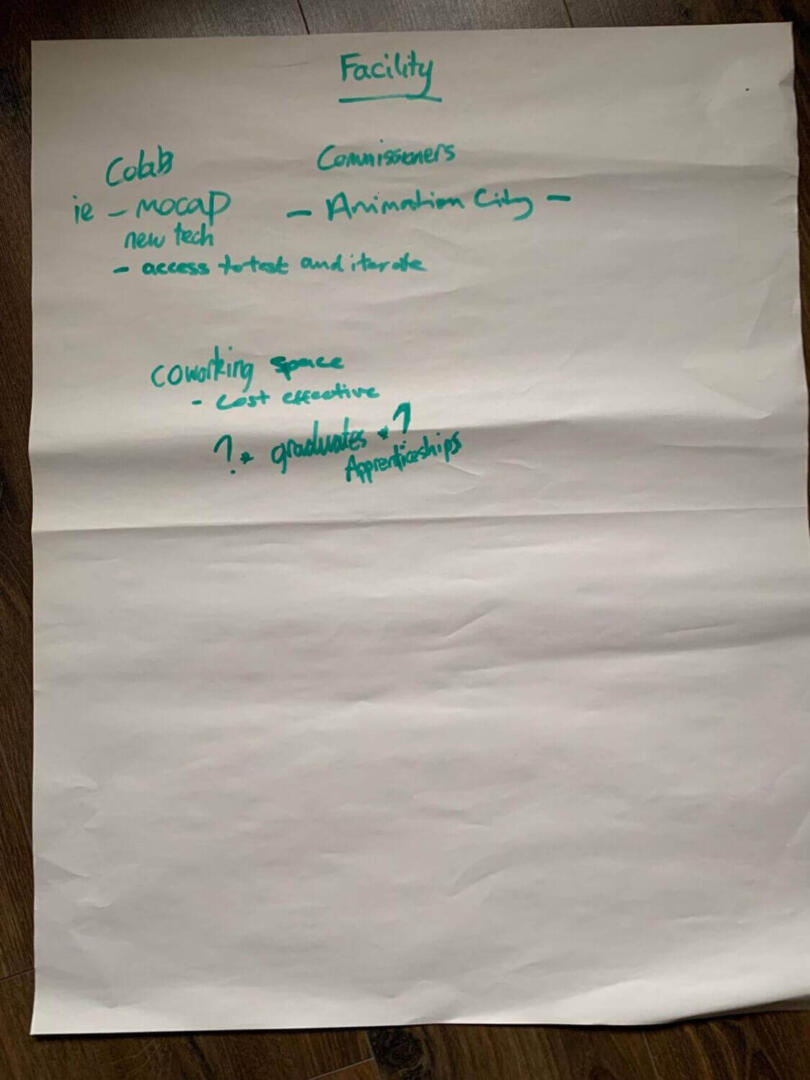 Facility
Colab
ie - mocap
new tech
- access to test and iterate
Commissioners
- Animation City -
coworking space
- cost effective
? * graduates * ?
Apprenticeships